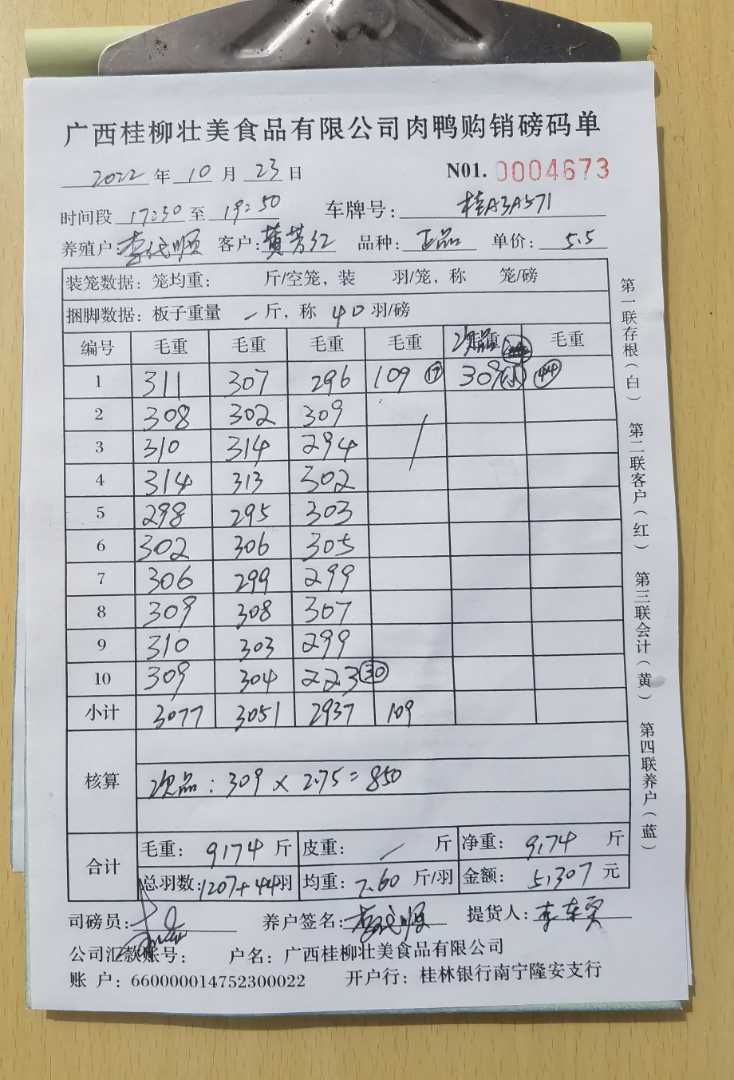 广西桂柳壮美食品有限公司肉鸭购销磅码单
2022年10月23日 N01. 0004673
时间段 17:30至19:50 车牌号: 桂A3A571
养殖户 李代顺 客户: 黄芳红 品种: 正品 单价: 5.5
装笼数据: 笼均重: 斤/空笼, 装 羽/笼, 称 笼/磅
捆脚数据: 板子重量 / 斤, 称 40 羽/磅
编号 毛重 毛重 毛重 毛重 次品 毛重
1 311 307 296 109 ⑰ 309 ㊹
2 308 302 309
3 310 314 294 /
4 314 313 302
5 298 295 303
6 302 306 305
7 306 299 299
8 309 308 307
9 310 303 299
10 309 304 223 ㉚
小计 3077 3051 2937 109
核算 次品: 309 × 2.75 = 850
合计 毛重: 9174 斤 皮重: / 斤 净重: 9174 斤
总羽数: 1207+44羽 均重: 7.60 斤/羽 金额: 51307 元
司磅员: 养户签名: 李代顺 提货人: 李
公司汇款账号: 户名: 广西桂柳壮美食品有限公司
账 户: 660000014752300022 开户行: 桂林银行南宁隆安支行
第一联存根(白) 第二联客户(红) 第三联会计(黄) 第四联养户(蓝)